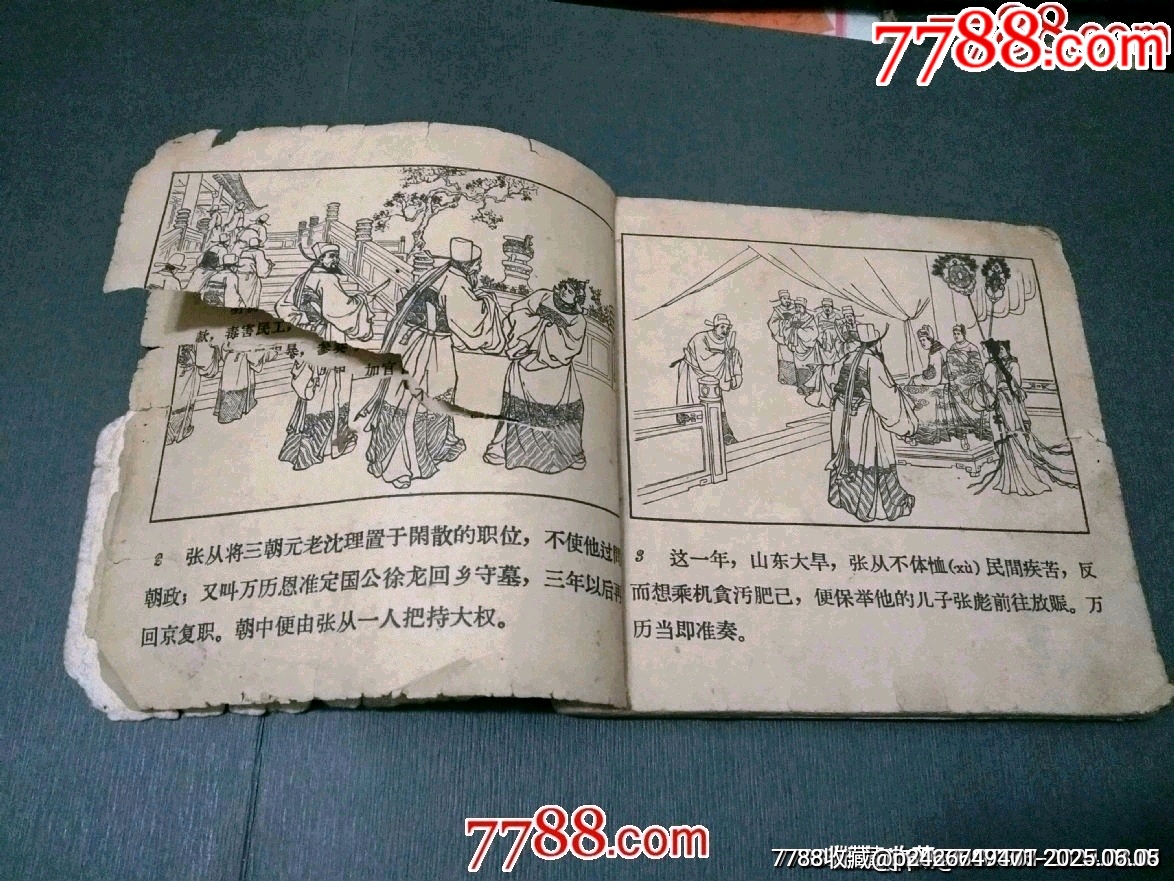 7788.com
款，毒害民工，
暴，参奏
加官
2 张从将三朝元老沈理置于閑散的职位，不使他过問
朝政；又叫万历恩准定国公徐龙回乡守墓，三年以后再
回京复职。朝中便由张从一人把持大权。
3 这一年，山东大旱，张从不体恤(xù)民間疾苦，反
而想乘机貪污肥己，便保举他的儿子张彪前往放賑。万
历当即准奏。
7788.com
7788收藏@p2426649471-2025.06.05